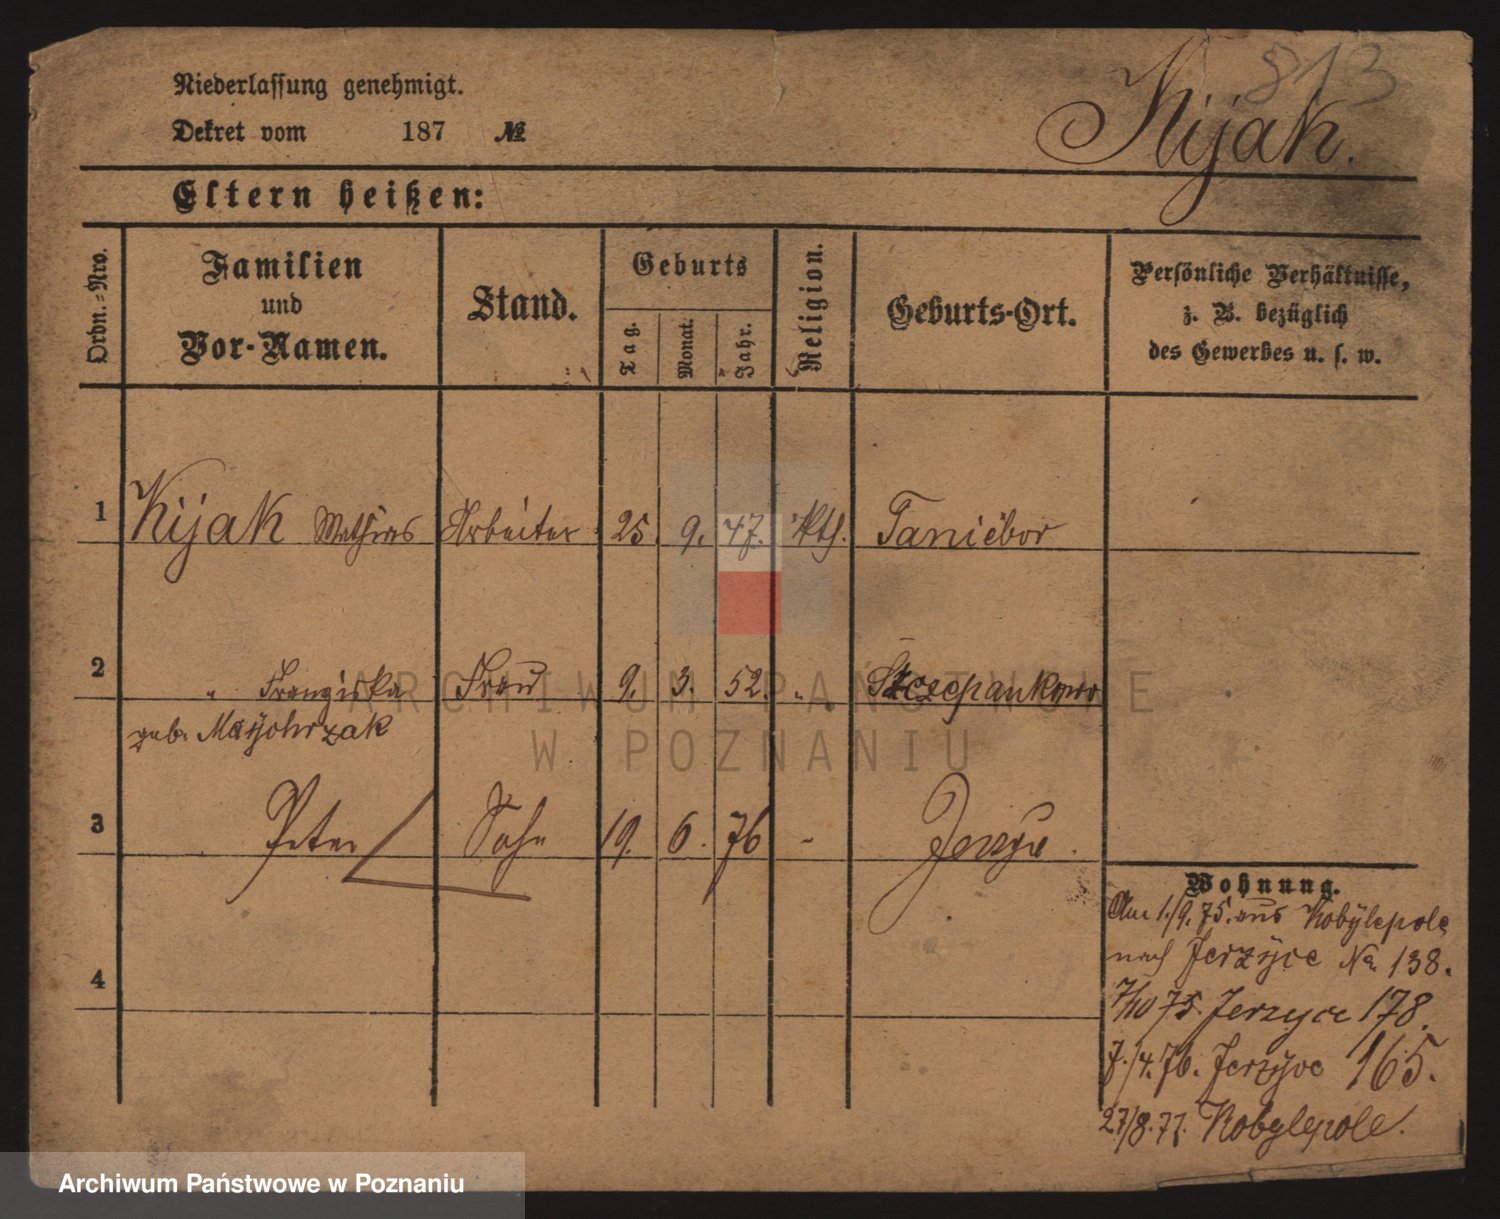 813
Niederlassung genehmigt.
Dekret vom 187 №
Kijak.
Eltern heißen:
Ordn.-Nro.
Familien
und
Vor-Namen.
Stand.
Geburts
Tag.
Monat.
Jahr.
Religion.
Geburts-Ort.
Persönliche Verhältnisse,
z. B. bezüglich
des Gewerbes u. s. w.
1 Kijak Mathias Arbeiter 25. 9. 47. Kth. Taniébor
2 " Franziska Frau 9. 3. 52. " Szczepankowo
geb. Mayohrzak
3 Peter Sohn 19. 6. 76 - Jerzyce.
4
Wohnung.
Am 1./9. 75. aus Kobylepole
nach Jerzyce No. 138.
7/10 75. Jerzyce 178.
7./4. 76. Jerzyce 165.
27/8. 77. Kobylepole.
ARCHIWUM PAŃSTWOWE
W POZNANIU
Archiwum Państwowe w Poznaniu